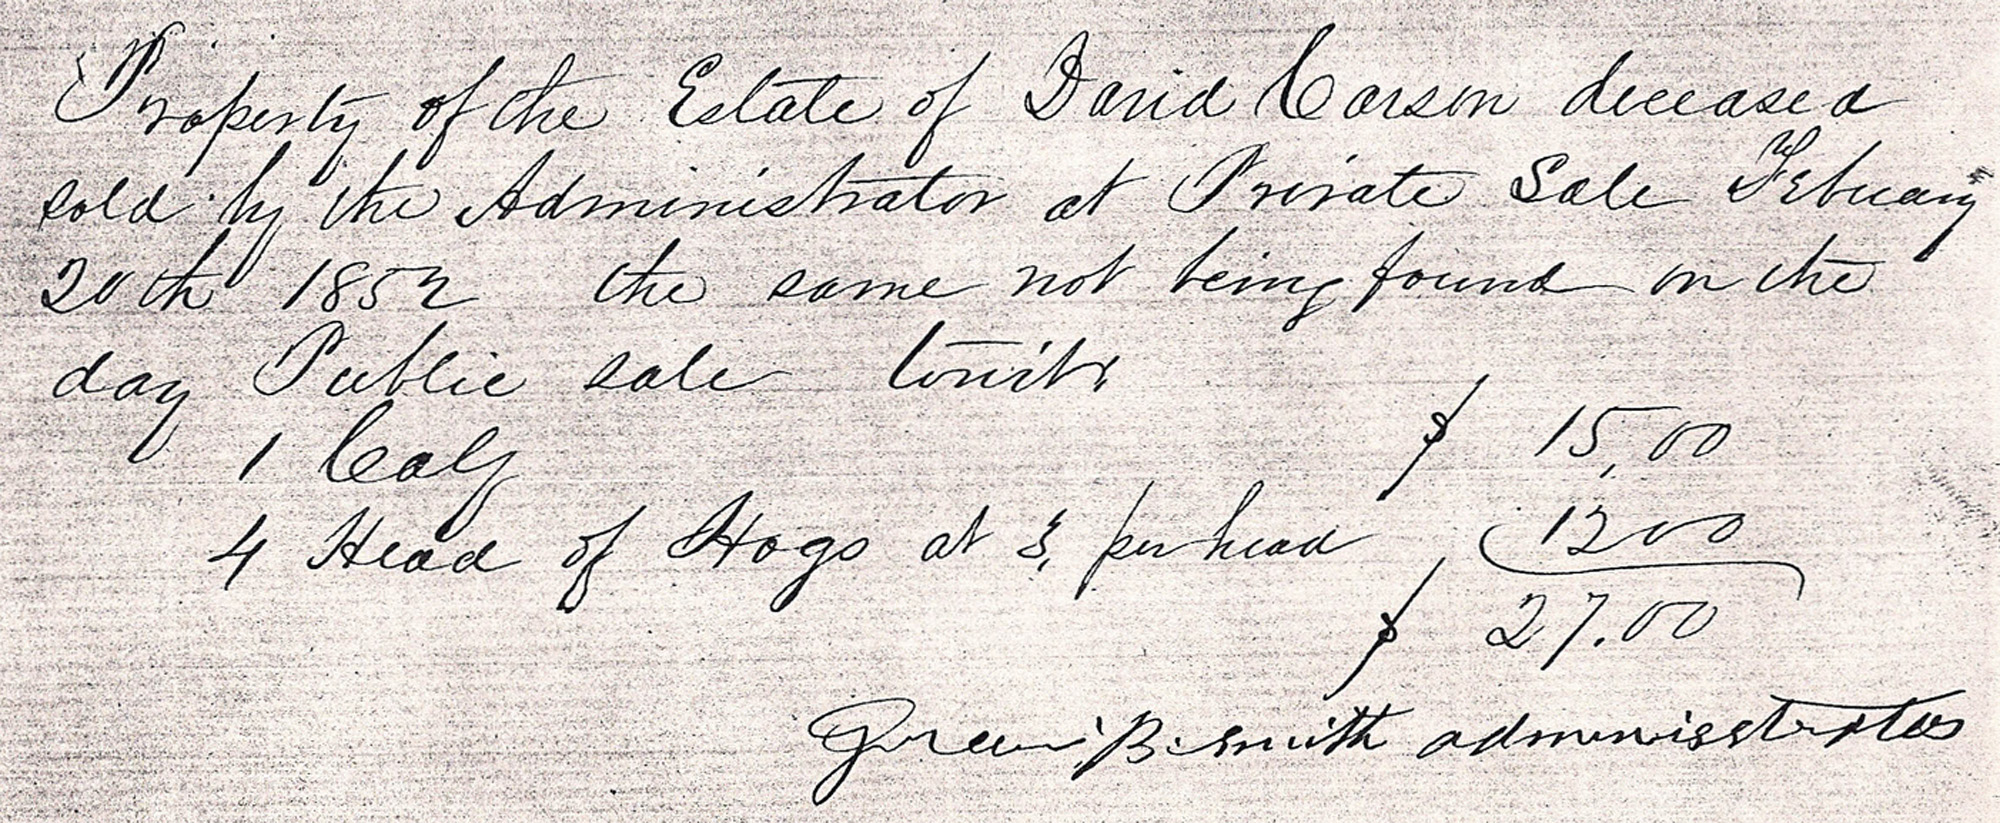 Property of the Estate of David Carson deceased
sold by the Administrator at Private Sale Febuary
20th 1852 the same not being found on the
day Public sale towit:
1 Calf $ 15,00
4 Head of Hogs at 3, per head 1200
$ 27.00
B. Smith administrator